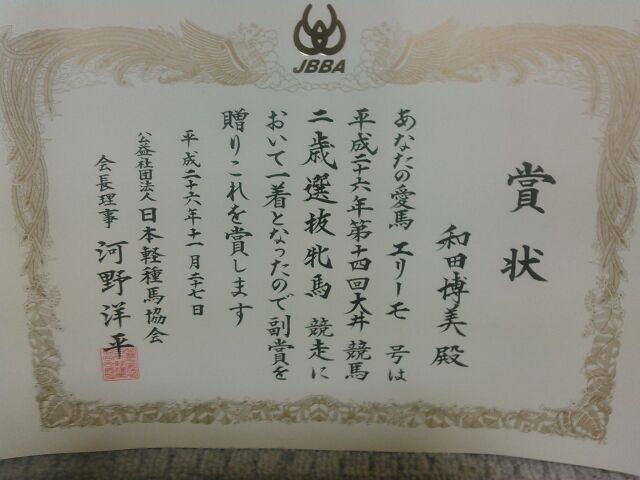 JBBA
賞状
和田博美殿
あなたの愛馬 エリーモ 号は
平成二十六年第十四回大井競馬
二歳選抜牝馬 競走に
おいて一着となったので副賞を
贈りこれを賞します
平成二十六年十一月二十七日
公益社団法人日本軽種馬協会
会長理事 河野洋平